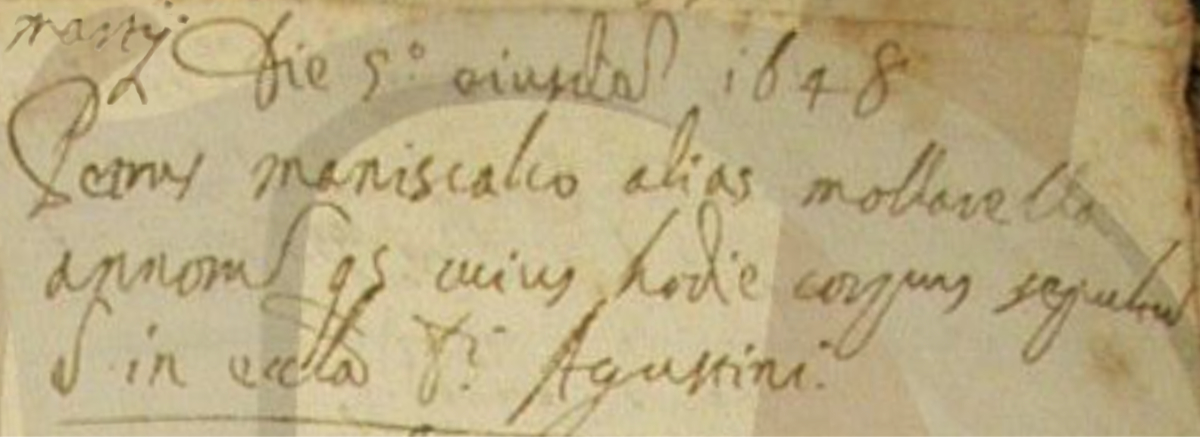 martij
Die 5.º eiusdem 1648
Petrus maniscalco alias mollavella
annorum 95 cuius hodie corpus sepultum
in eccla S.ti Agustini.